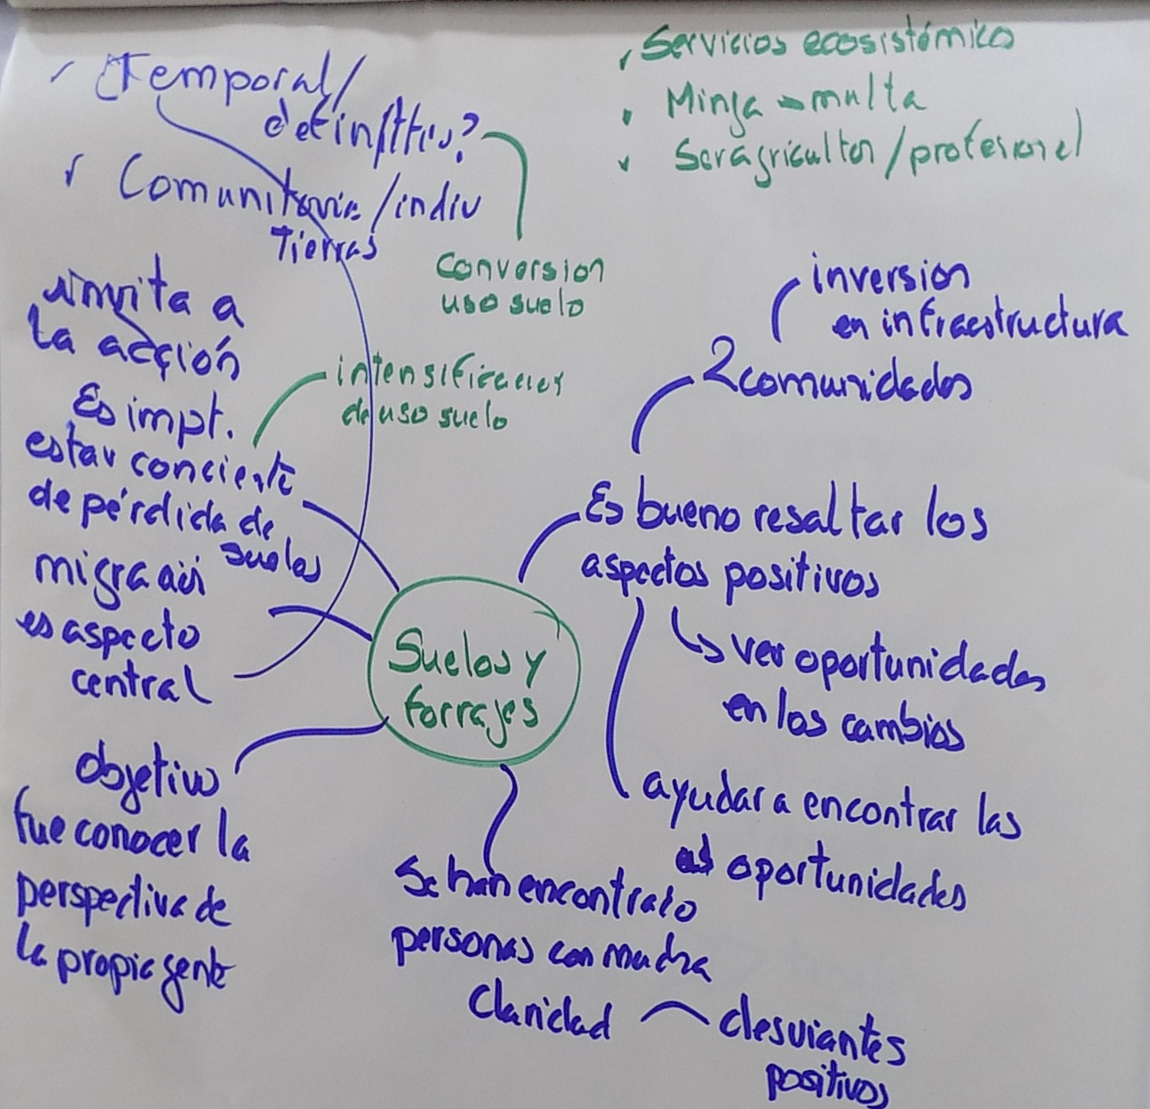 ✓ Temporal/
definitivo?
✓ Comunitaria/indiv
Tierras
conversion
uso suelo
✓ Servicios ecosistémico
• Minga → multa
✓ Ser agricultor/profesional
invita a
la acción
intensificacion
de uso suelo
Es impt.
estar conciente
de pérdida de
suelos
migración
es aspecto
central
objetivo
fue conocer la
perspectiva de
la propia gente
Suelos y
forrajes
inversion
en infraestructura
2 comunidades
Es bueno resaltar los
aspectos positivos
↳ ver oportunidades
en los cambios
ayudar a encontrar las
oportunidades
Se han encontrato
personas con mucha
Claridad
desviantes
positivos